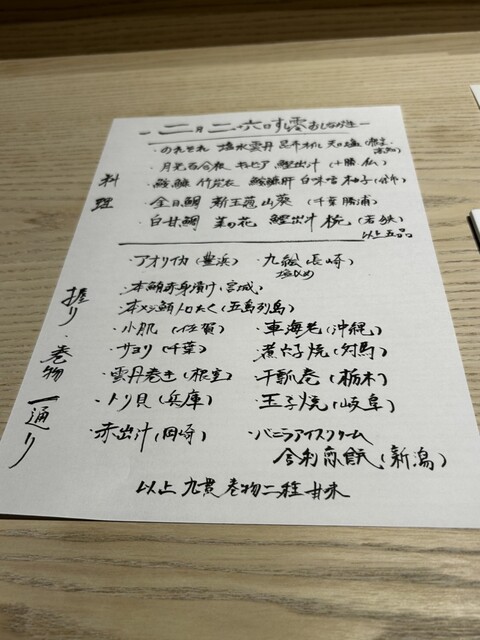 二月二十六日 す し 澪 おしながき
料理
・のれそれ 塩水雲丹 昆布 天日塩(根室、高知)
・月光百合根 キャビア 鰹出汁(十勝、仏)
・鮟鱇 竹炭衣 鮟鱇肝 白味噌 柚子
・金目鯛 新玉葱 山葵(千葉勝浦)
・白甘鯛 菜の花 鰹出汁 桃(若狭)
以上五品
握り・巻物 一通り
・アオリイカ(豊浜) ・九絵(長崎)
塩〆め
・本鮪赤身漬け(宮城)
・本メジ鮪トロたく(五島列島)
・小肌(佐賀) ・車海老(沖縄)
・サヨリ(千葉) ・煮穴子焼(対馬)
・雲丹巻き(根室) ・干瓢巻(栃木)
・トリ貝(兵庫) ・玉子焼(岐阜)
・赤出汁(岡崎) ・バニラアイスクリーム
舎利煎餅(新潟)
以上 九貫 巻物二種 甘味